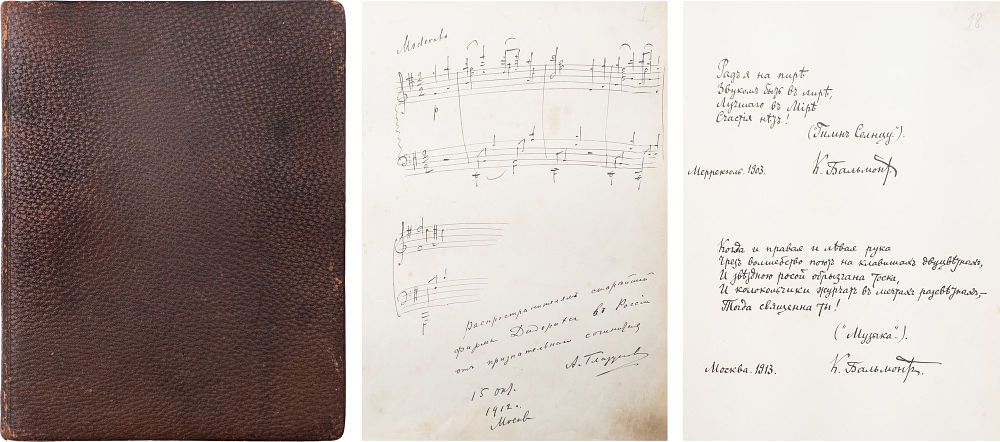 1
Moderato
p
Распространителямъ старѣйшей
фирмы Дидерихсъ въ Россіи
отъ признательнаго сочинителя
А. Глазуновъ
15 окт.
1912 г.
Москва
18
Радъ я на пирѣ
Звукомъ быть въ лирѣ,
Лучшаго въ Мірѣ
Счастія нѣтъ!
("Гимнъ Солнцу").
Меррекюль. 1903.
К. Бальмонтъ.
Когда и правая и лѣвая рука
Чрезъ волшебство поютъ на клавишахъ двуцвѣтныхъ,
И звѣздною росой обрызгана тоска,
И колокольчики журчатъ въ мечтахъ разсвѣтныхъ,—
Тогда священна ты!
("Музыка").
Москва. 1913.
К. Бальмонтъ.